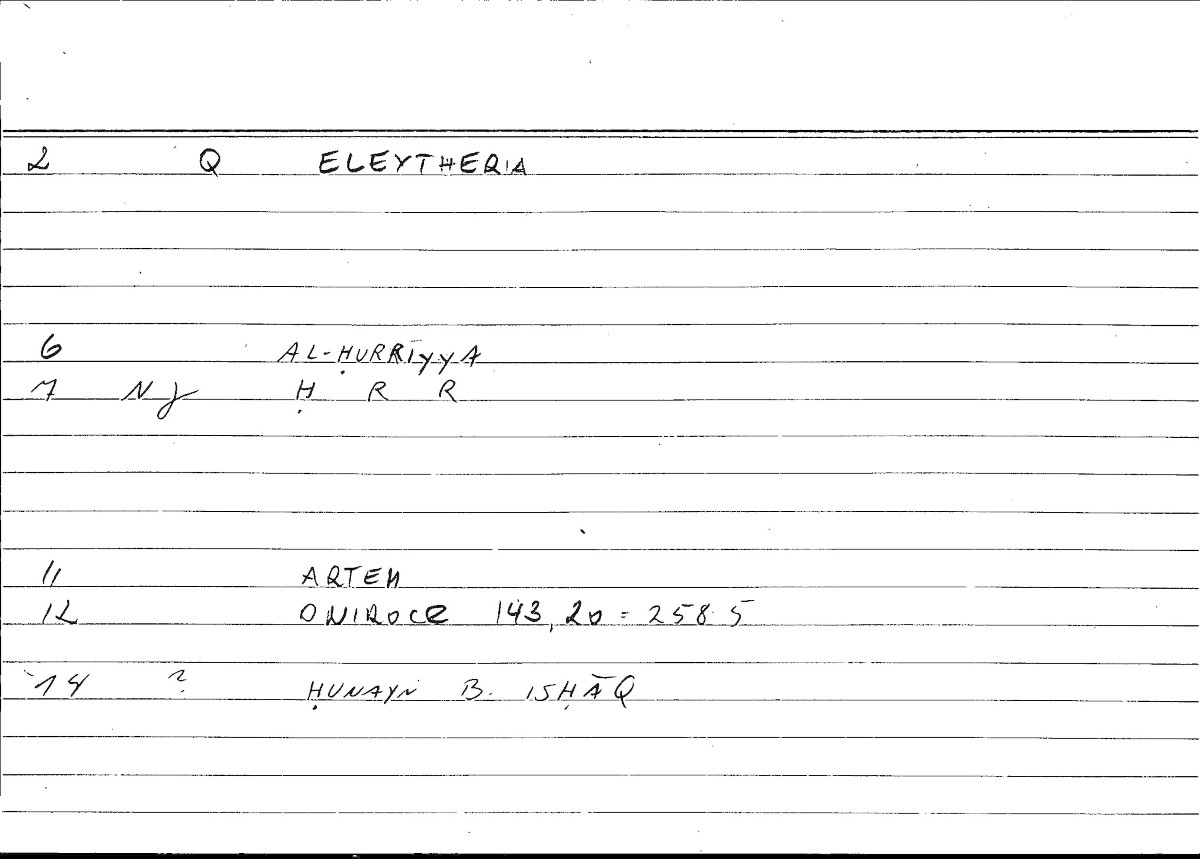 2 Q ELEYTHERIA
6 AL-ḤURRĪYYA
7 NJ Ḥ R R
11 ARTEM
12 ONIROCR 143,20 = 258.5
14 ? ḤUNAYN B. ISḤĀQ